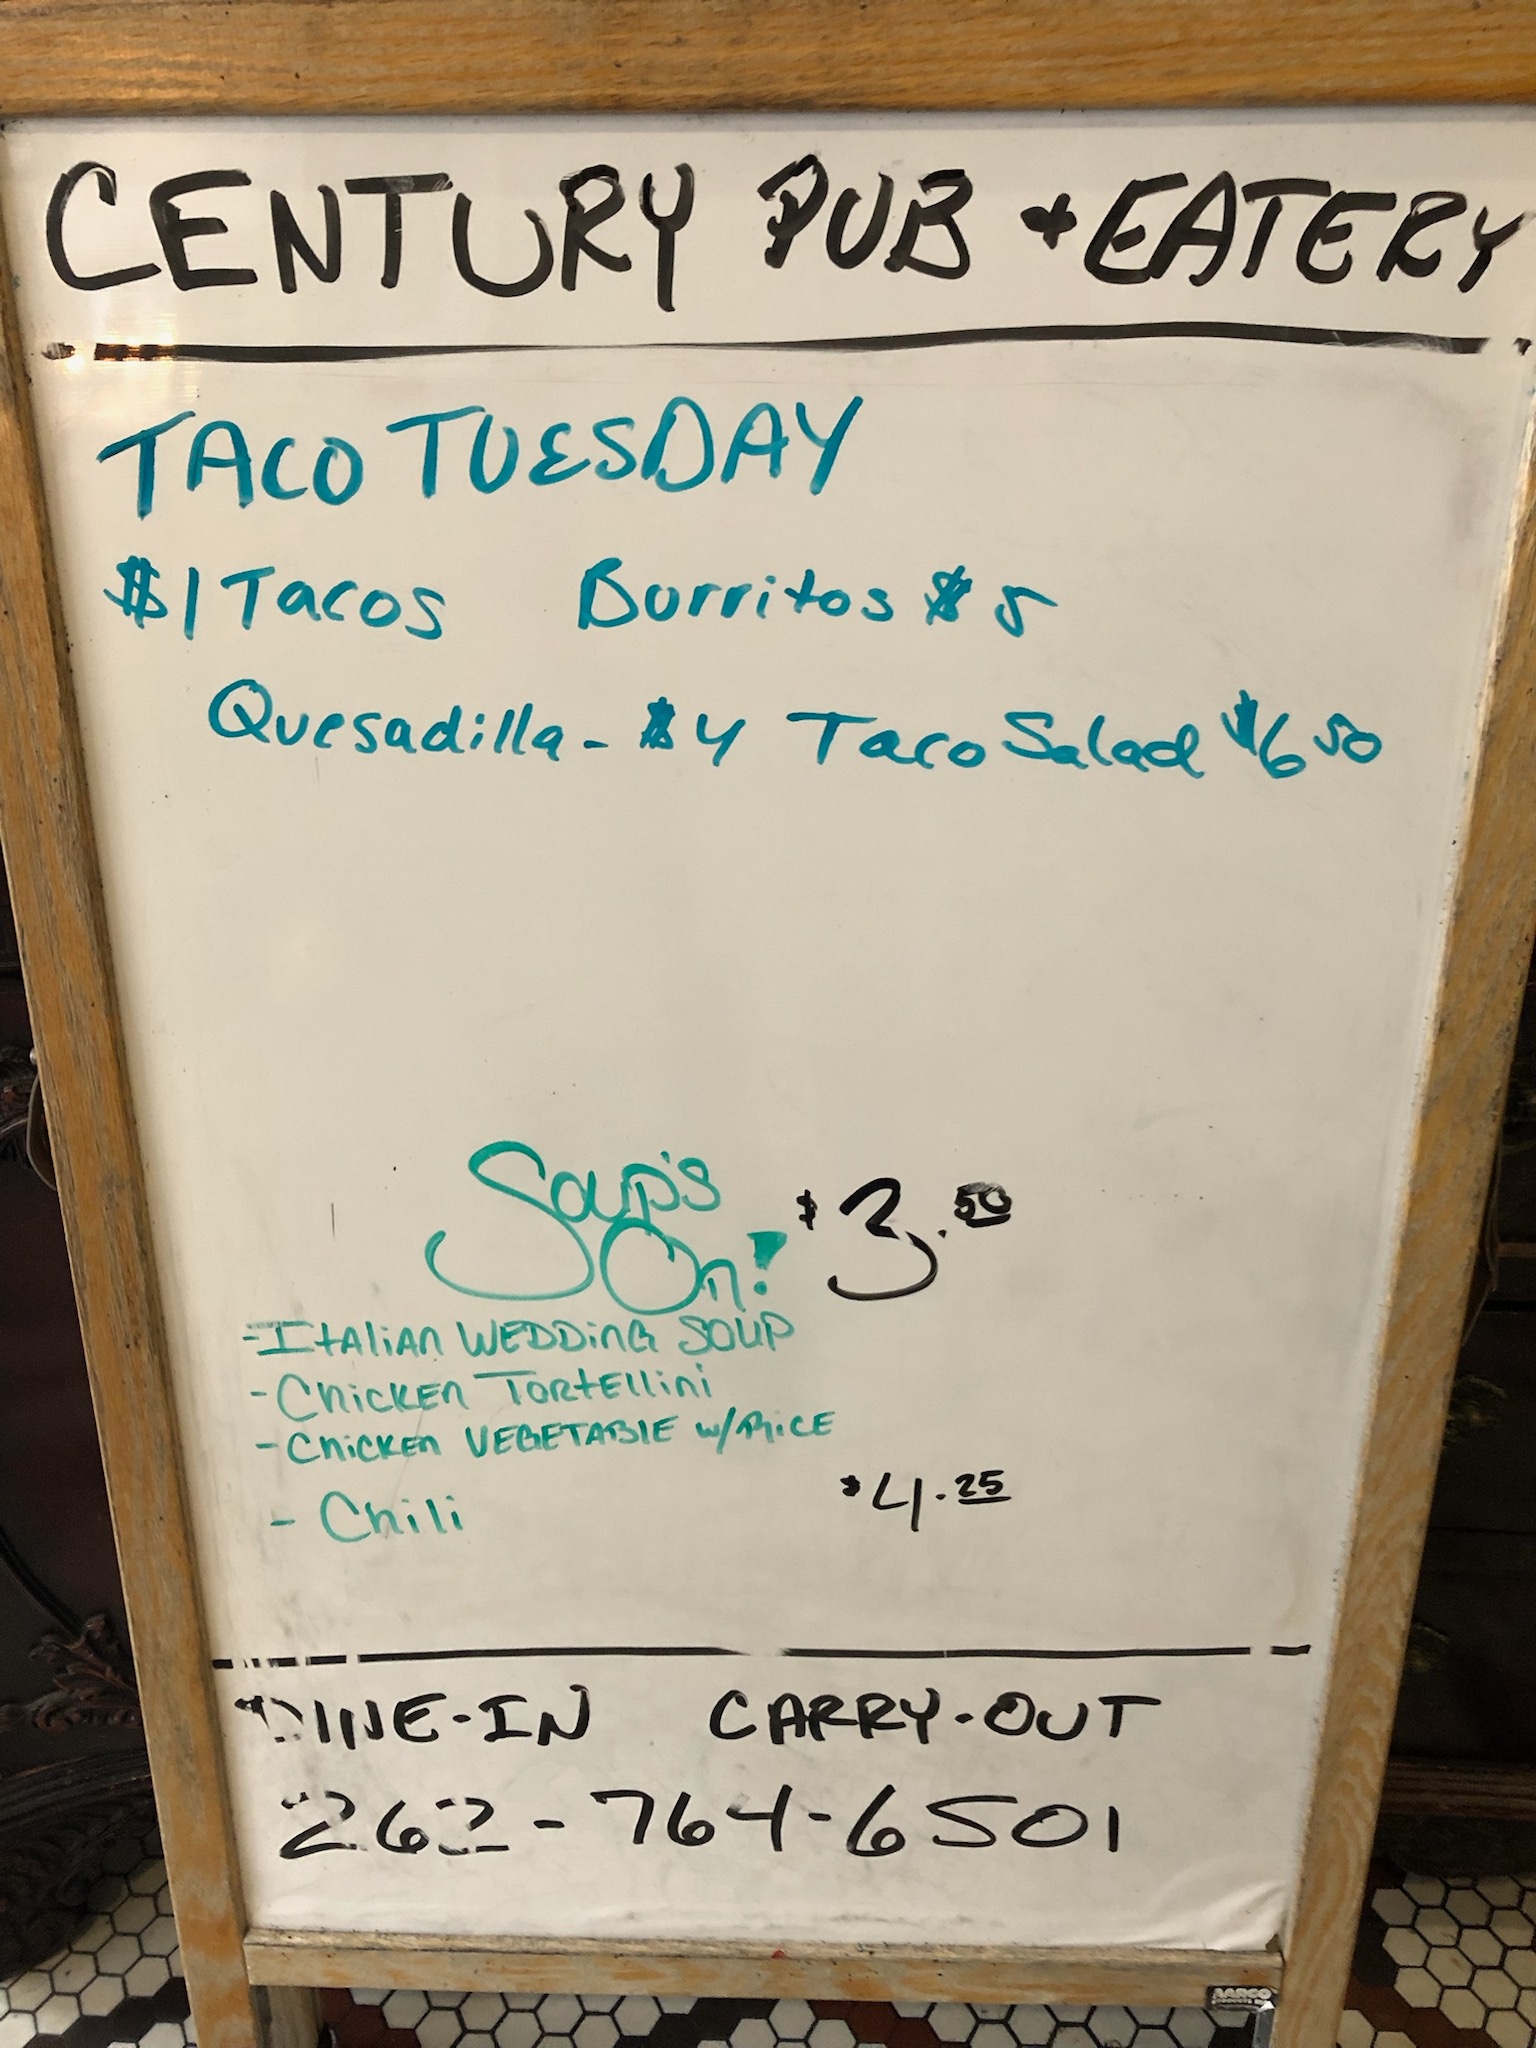 CENTURY PUB + EATERY
TACO TUESDAY
$1 Tacos Burritos $5
Quesadilla - $4 Taco Salad $6 50
Soup's On! $3.50
- Italian WEDDING SOUP
- Chicken Tortellini
- Chicken VEGETABLE w/ RICE
- Chili $4.25
DINE-IN CARRY-OUT
262-764-6501
AARCO